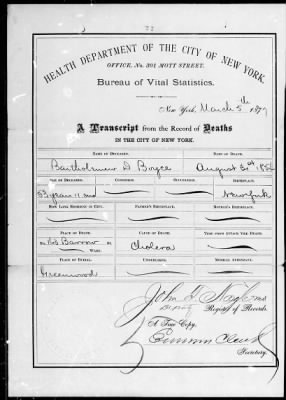 HEALTH DEPARTMENT OF THE CITY OF NEW YORK.
OFFICE, No. 301 MOTT STREET.
Bureau of Vital Statistics.
New York, March 5th
A Transcript from the Record of Deaths
IN THE CITY OF NEW YORK.
NAME OF DECEASED. DATE OF DEATH.
Bartholmew D Boyce August
AGE OF DECEASED. CONDITION. OCCUPATION. BIRTHPLACE.
New York
HOW LONG RESIDENT IN CITY. FATHER'S BIRTHPLACE. MOTHER'S BIRTHPLACE.
PLACE OF DEATH. CAUSE OF DEATH. TIME FROM ATTACK TILL DEATH.
Barrow St Cholera
WARD.
PLACE OF BURIAL. UNDERTAKER. MEDICAL ATTENDANT.
Greenwood
John T Nagle MD
Register of Records.
A True Copy,
Emmons Clark
Secretary.